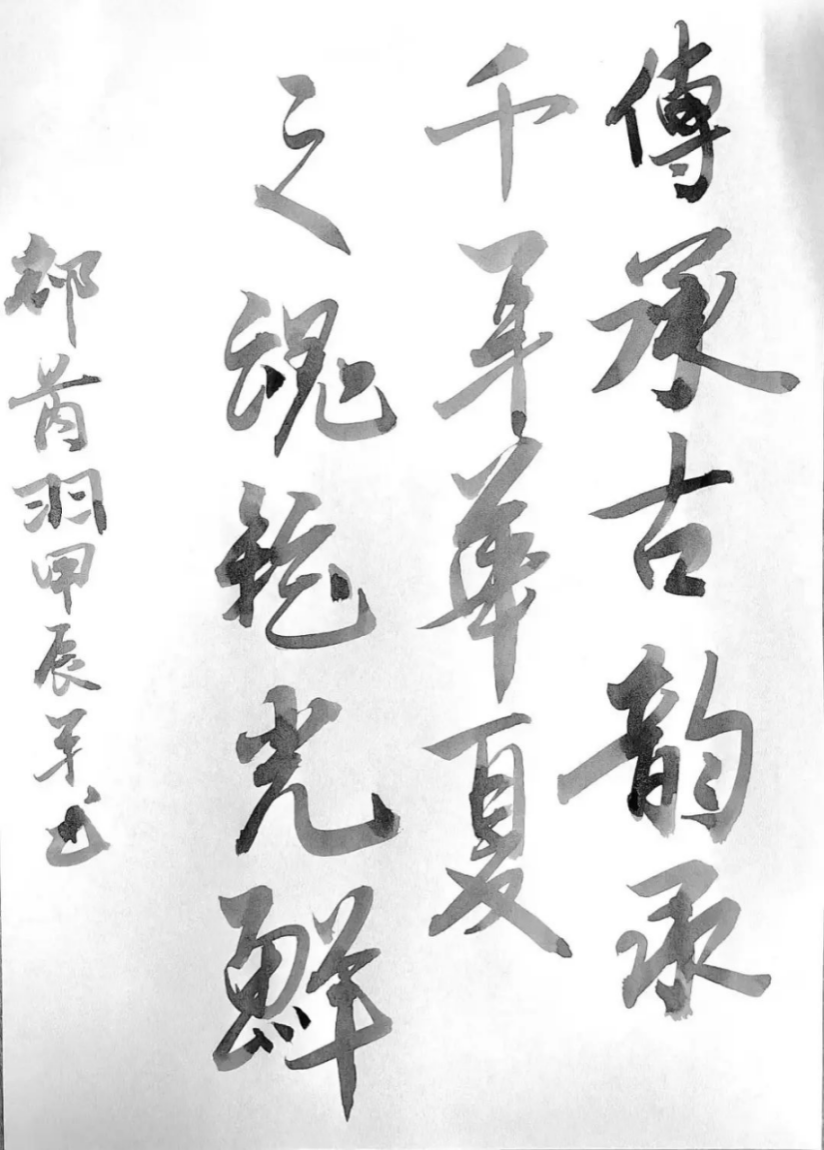 傳承古韵承
千年華夏
之魂艳光鮮
郝芮羽甲辰年书